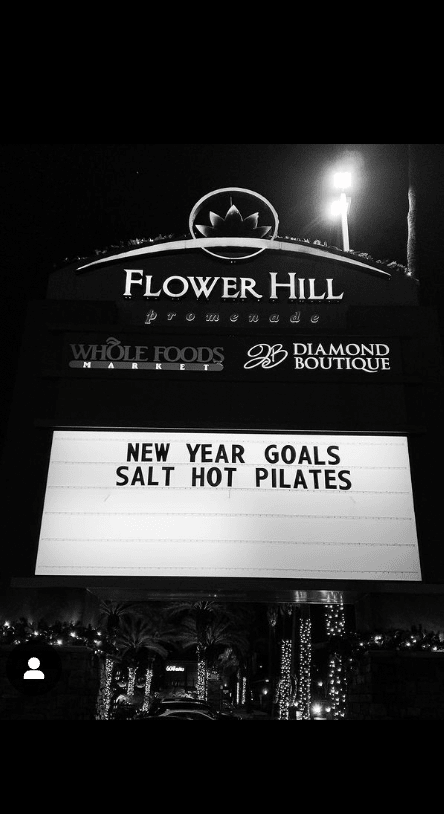 FLOWER HILL
promenade
WHOLE FOODS
MARKET
DIAMOND
BOUTIQUE
NEW YEAR GOALS
SALT HOT PILATES